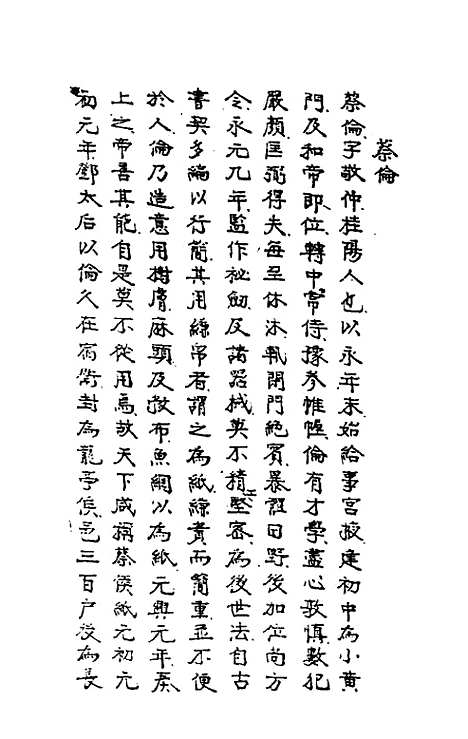 蔡倫
蔡倫字敬仲桂陽人也以永平末始給事宮掖建初中為小黃
門及和帝即位轉中常侍豫參帷幄倫有才學盡心敦慎數犯
嚴顏匡弼得失每至休沐輒閉門絕賓暴體田野後加位尚方
令永元九年監作祕劒及諸器械莫不精堅密為後世法自古
書契多編以竹簡其用縑帛者謂之為紙縑貴而簡重並不便
於人倫乃造意用樹膚麻頭及敝布魚網以為紙元興元年奏
上之帝善其能自是莫不從用焉故天下咸稱蔡侯紙元初元
初元年鄧太后以倫久在宿衛封為龍亭侯邑三百户後為長